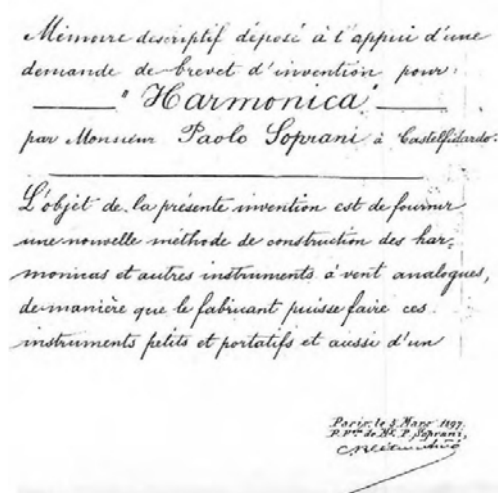 Mémoire descriptif déposé à l'appui d'une
demande de brevet d'invention pour:
"Harmonica"
par Monsieur Paolo Soprani à Castelfidardo.
L'objet de la présente invention est de fournir
une nouvelle méthode de construction des har-
monicas et autres instruments à vent analogues,
de manière que le fabricant puisse faire ces
instruments petits et portatifs et aussi d'un
Paris, le 5 Mars 1897.
P. Pon de Mr. P. Soprani,